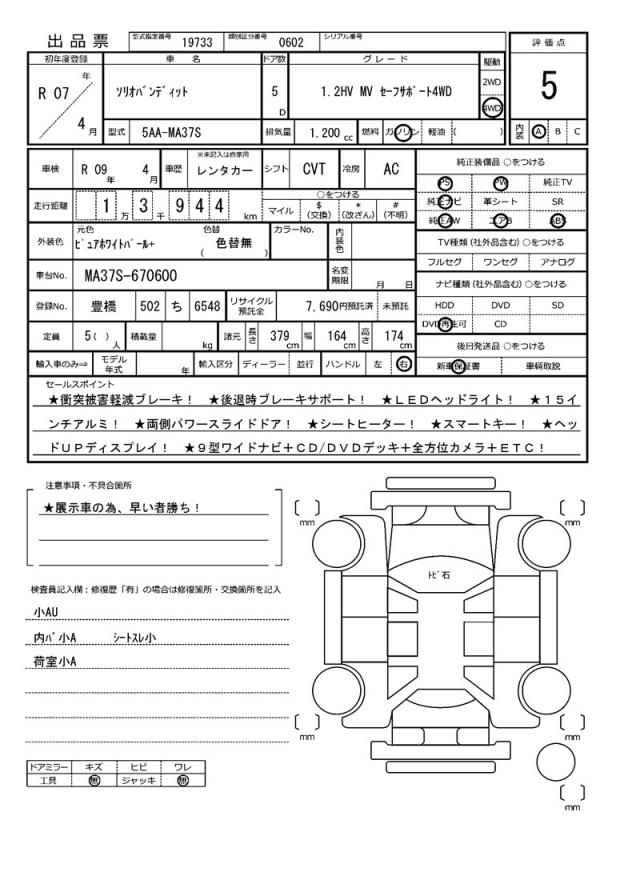 出品票 型式指定番号 19733 類別区分番号 0602 シリアル番号
初年度登録 車名 ドア数 グレード 駆動 評価点
R 07 年 4 月 ソリオバンディット 5 D 1.2HV MV セーフサポート4WD 2WD 4WD 5
型式 5AA-MA37S 排気量 1.200 cc 燃料 ガソリン 軽油 ( ) 内装 A B C
車検 R 09 年 4 月 車歴 ※未記入は自家用 レンタカー シフト CVT 冷房 AC 純正装備品 ○をつける
PS PW 純正TV
走行距離 1 万 3 千 9 4 4 km ○をつける マイル $ (交換) * (改ざん) # (不明) 純正ナビ 革シート SR
純正AW エアB ABS
外装色 元色 ピュアホワイトパール+ 色替 ( 色替無 ) カラーNo. 内装色 TV種類 (社外品含む) ○をつける
フルセグ ワンセグ アナログ
車台No. MA37S-670600 名変期限 月 日 ナビ種類 (社外品含む) ○をつける
登録No. 豊橋 502 ち 6548 リサイクル預託金 7,690円預託済 未預託 HDD DVD SD
DVD再生可 CD
定員 5( )人 積載量 kg 諸元 長さ 379 cm 幅 164 cm 高さ 174 cm 後日発送品 ○をつける
輸入車のみ⇒ モデル年式 年 輸入区分 ディーラー 並行 ハンドル 左 右 新車保証書 車輌取説
セールスポイント
★衝突被害軽減ブレーキ! ★後退時ブレーキサポート! ★LEDヘッドライト! ★15イ
ンチアルミ! ★両側パワースライドドア! ★シートヒーター! ★スマートキー! ★ヘッ
ドUPディスプレイ! ★9型ワイドナビ+CD/DVDデッキ+全方位カメラ+ETC!
注意事項・不具合箇所
★展示車の為、早い者勝ち!
[ ] mm [ ] mm
トビ石
検査員記入欄:修復歴「有」の場合は修復箇所・交換箇所を記入
小AU
内パ小A シートスレ小
荷室小A
[ ] mm [ ] mm
ドアミラー キズ ヒビ ワレ
工具 無 ジャッキ 無
[ ] mm